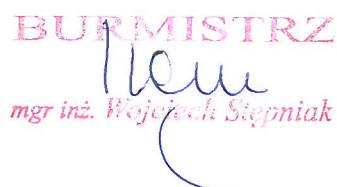 BURMISTRZ
mgr inż. Wojciech Stępniak